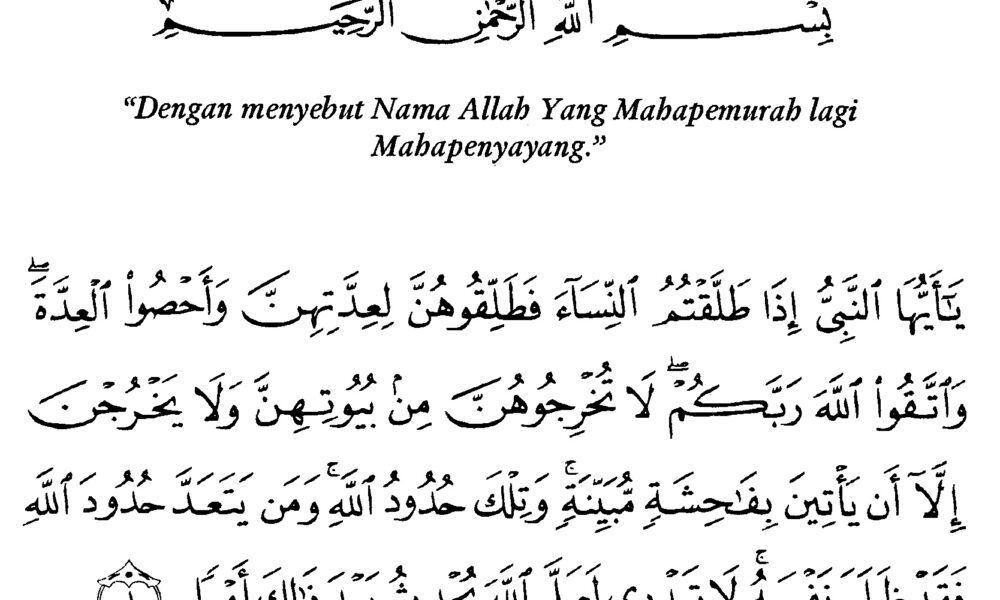 بِسْمِ ٱللَّهِ ٱلرَّحْمَٰنِ ٱلرَّحِيمِ
“Dengan menyebut Nama Allah Yang Mahapemurah lagi
Mahapenyayang.”
يَـٰٓأَيُّهَا ٱلنَّبِىُّ إِذَا طَلَّقْتُمُ ٱلنِّسَآءَ فَطَلِّقُوهُنَّ لِعِدَّتِهِنَّ وَأَحْصُوا۟ ٱلْعِدَّةَ ۖ
وَٱتَّقُوا۟ ٱللَّهَ رَبَّكُمْ ۖ لَا تُخْرِجُوهُنَّ مِنۢ بُيُوتِهِنَّ وَلَا يَخْرُجْنَ
إِلَّآ أَن يَأْتِينَ بِفَـٰحِشَةٍ مُّبَيِّنَةٍ ۚ وَتِلْكَ حُدُودُ ٱللَّهِ ۚ وَمَن يَتَعَدَّ حُدُودَ ٱللَّهِ